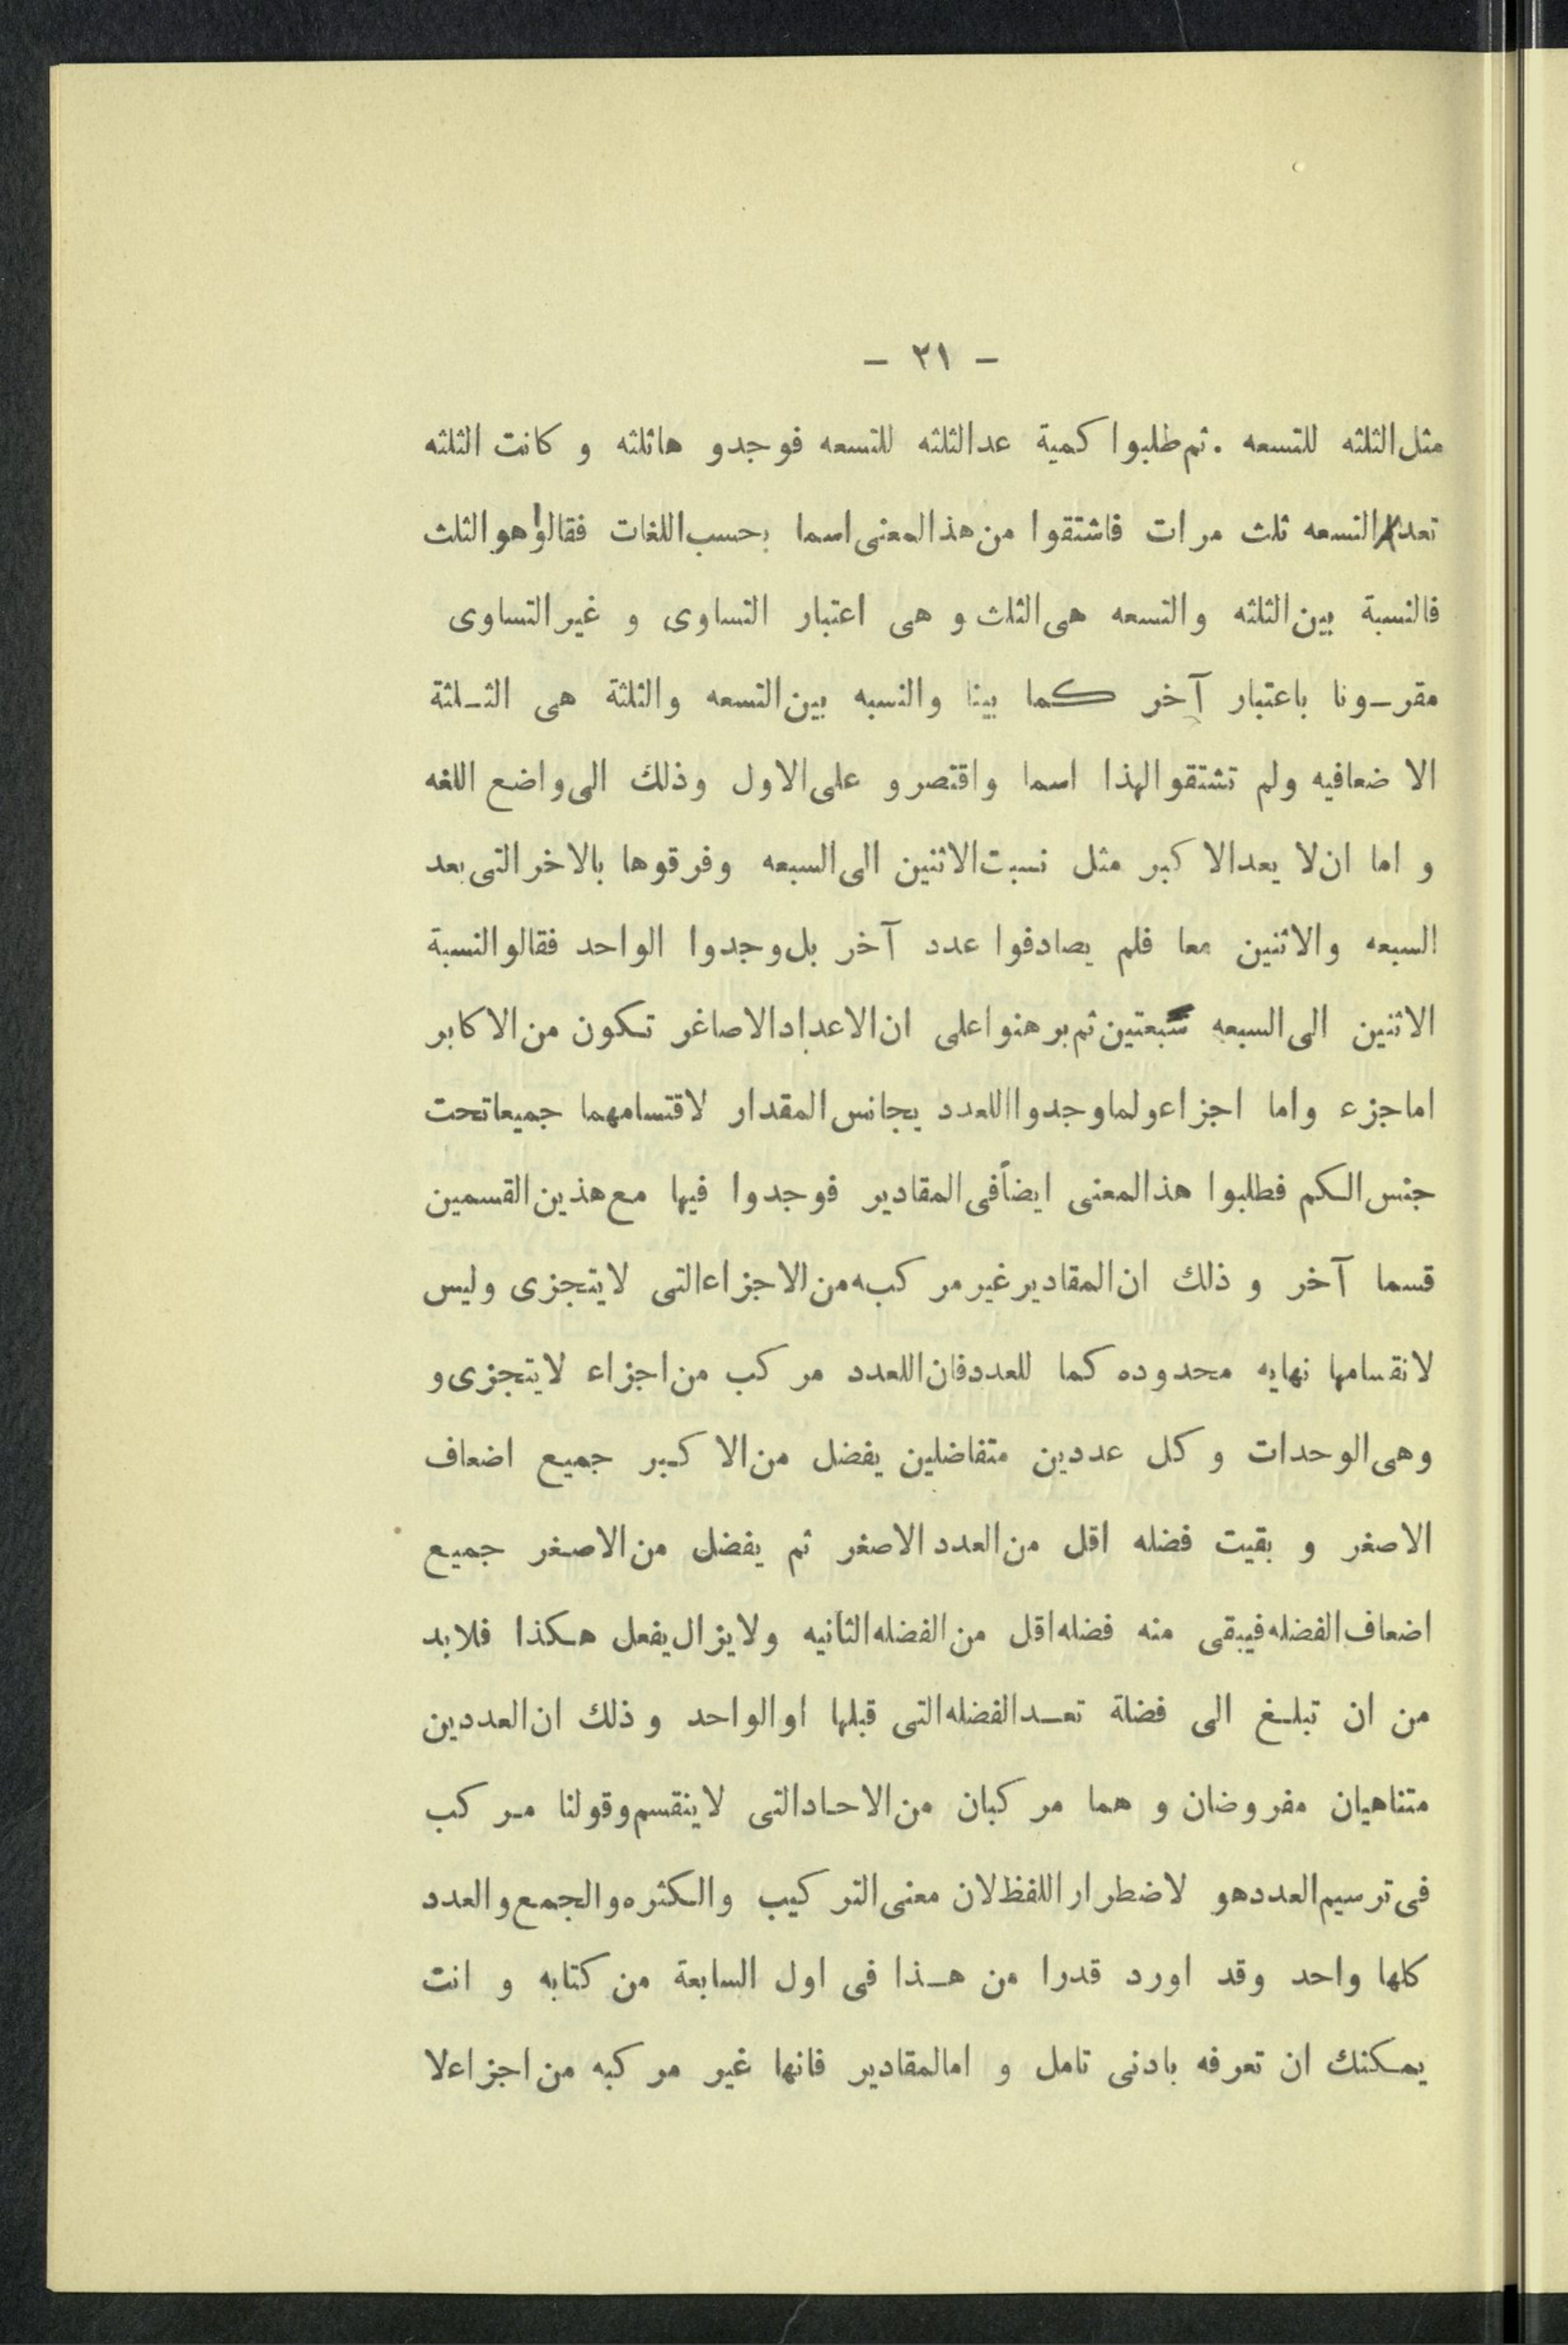 - ٢١ -
مثل الثلثه للتسعه . ثم طلبوا كمية عد الثلثه للتسعه فوجدو هاثلثه و كانت الثلثه
تعد التسعه ثلث مرات فاشتقوا من هذ المعنى اسما بحسب اللغات فقالوا هو الثلث
فالنسبة بين الثلثه والتسعه هى الثلث و هى اعتبار التساوى و غير التساوى
مقرونا باعتبار آخر كما بينا والنسبه بين التسعه والثلثة هى الثلثة
الا ضعافيه ولم تشتقو الهذا اسما واقتصرو على الاول وذلك الى واضع اللغه
و اما ان لا يعد الا كبر مثل نسبت الاثنين الى السبعه وفرقوها بالاخر التى بعد
السبعه والاثنين معا فلم يصادفوا عدد آخر بل وجدوا الواحد فقالو النسبة
الاثنين الى السبعه سبعتين ثم برهنوا على ان الاعداد الاصاغر تكون من الاكابر
اما جزء واما اجزاء ولما وجدوا اللعدد يجانس المقدار لاقتسامهما جميعا تحت
جنس الكم فطلبوا هذ المعنى ايضاً فى المقادير فوجدوا فيها مع هذين القسمين
قسما آخر و ذلك ان المقادير غير مركبه من الاجزاء التى لايتجزى وليس
لانقسامها نهايه محدوده كما للعدد فان اللعدد مركب من اجزاء لايتجزى و
وهى الوحدات و كل عددين متفاضلين يفضل من الا كبر جميع اضعاف
الاصغر و بقيت فضله اقل من العدد الاصغر ثم يفضل من الاصغر جميع
اضعاف الفضله فيبقى منه فضله اقل من الفضله الثانيه ولايزال يفعل هكذا فلابد
من ان تبلغ الى فضلة تعد الفضله التى قبلها او الواحد و ذلك ان العددين
متناهيان مفروضان و هما مركبان من الاحاد التى لاينقسم وقولنا مركب
فى ترسيم العدد هو لاضطرار اللفظ لان معنى التركيب والكثره والجمع والعدد
كلها واحد وقد اورد قدرا من هذا فى اول السابعة من كتابه و انت
يمكنك ان تعرفه بادنى تامل و امالمقادير فانها غير مركبه من اجزاء لا